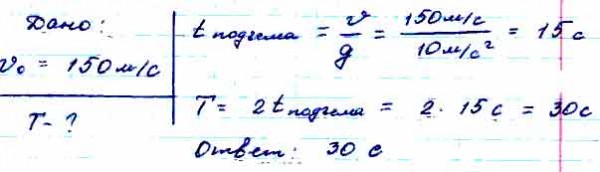 Дано:
v₀ = 150 м/с
T - ?
t подъема = v/g = 150 м/с / 10 м/с² = 15 с
T = 2 t подъема = 2 · 15 с = 30 с
Ответ: 30 с